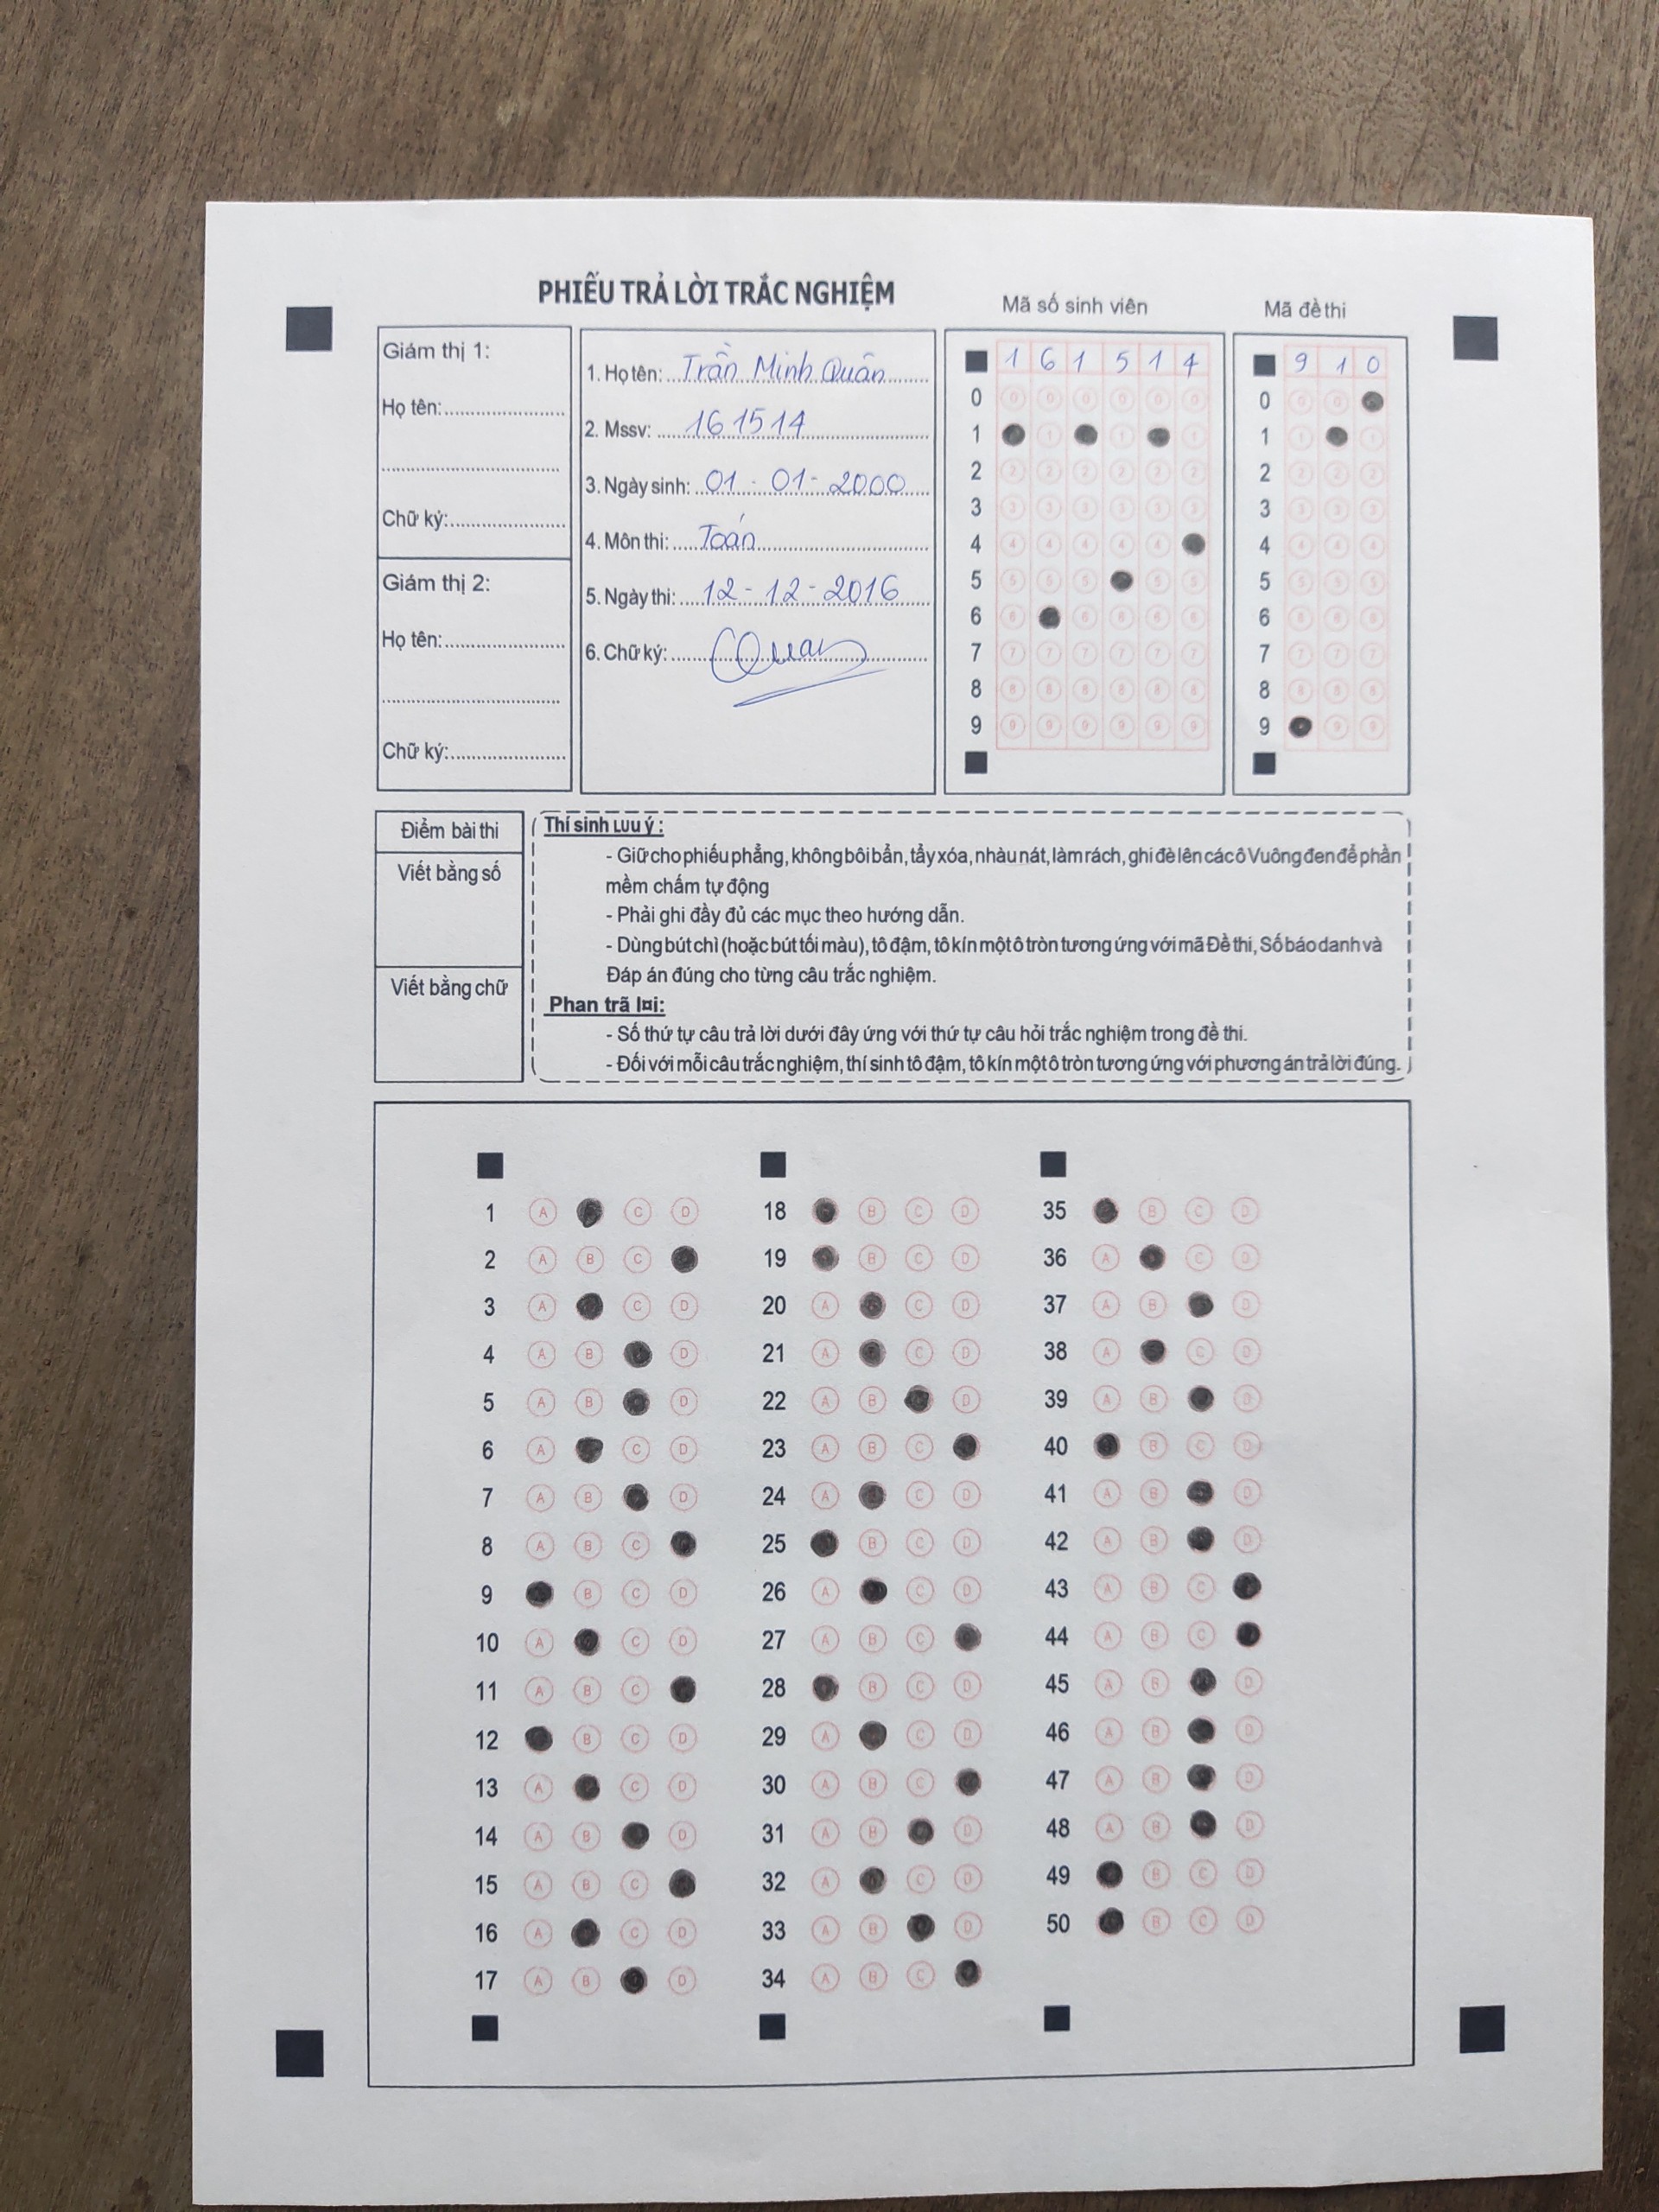 PHIẾU TRẢ LỜI TRẮC NGHIỆM
Mã số sinh viên
Mã đề thi
Giám thị 1:
Họ tên:
Chữ ký:
Giám thị 2:
Họ tên:
Chữ ký:
1. Họ tên: Trần Minh Quân
2. Mssv: 161514
3. Ngày sinh: 01-01-2000
4. Môn thi: Toán
5. Ngày thi: 12-12-2016
6. Chữ ký: Quan
1 6 1 5 1 4
0 0 0 0 0 0 0
1 1 1 1
2 2 2 2 2 2 2
3 3 3 3 3 3 3
4 4 4 4 4 4
5 5 5 5 5 5
6 6 6 6 6 6
7 7 7 7 7 7 7
8 8 8 8 8 8 8
9 9 9 9 9 9 9
9 1 0
0 0 0
1 1 1
2 2 2 2
3 3 3 3
4 4 4 4
5 5 5 5
6 6 6 6
7 7 7 7
8 8 8 8
9 9 9
Điểm bài thi
Viết bằng số
Viết bằng chữ
Thí sinh Lưu ý :
- Giữ cho phiếu phẳng, không bôi bẩn, tẩy xóa, nhàu nát, làm rách, ghi đè lên các ô Vuông đen để phần
mềm chấm tự động
- Phải ghi đầy đủ các mục theo hướng dẫn.
- Dùng bút chì (hoặc bút tối màu), tô đậm, tô kín một ô tròn tương ứng với mã Đề thi, Số báo danh và
Đáp án đúng cho từng câu trắc nghiệm.
Phan trã l¤i:
- Số thứ tự câu trả lời dưới đây ứng với thứ tự câu hỏi trắc nghiệm trong đề thi.
- Đối với mỗi câu trắc nghiệm, thí sinh tô đậm, tô kín một ô tròn tương ứng với phương án trả lời đúng.
1 A C D
2 A B C
3 A C D
4 A B D
5 A B D
6 A C D
7 A B D
8 A B C
9 B C D
10 A C D
11 A B C
12 B C D
13 A C D
14 A B D
15 A B C
16 A C D
17 A B D
18 B C D
19 B C D
20 A C D
21 A C D
22 A B D
23 A B C
24 A C D
25 B C D
26 A C D
27 A B C
28 B C D
29 A C D
30 A B C
31 A B D
32 A C D
33 A B D
34 A B C
35 B C D
36 A C D
37 A B D
38 A C D
39 A B D
40 B C D
41 A B D
42 A B D
43 A B C
44 A B C
45 A B D
46 A B D
47 A B D
48 A B D
49 B C D
50 B C D